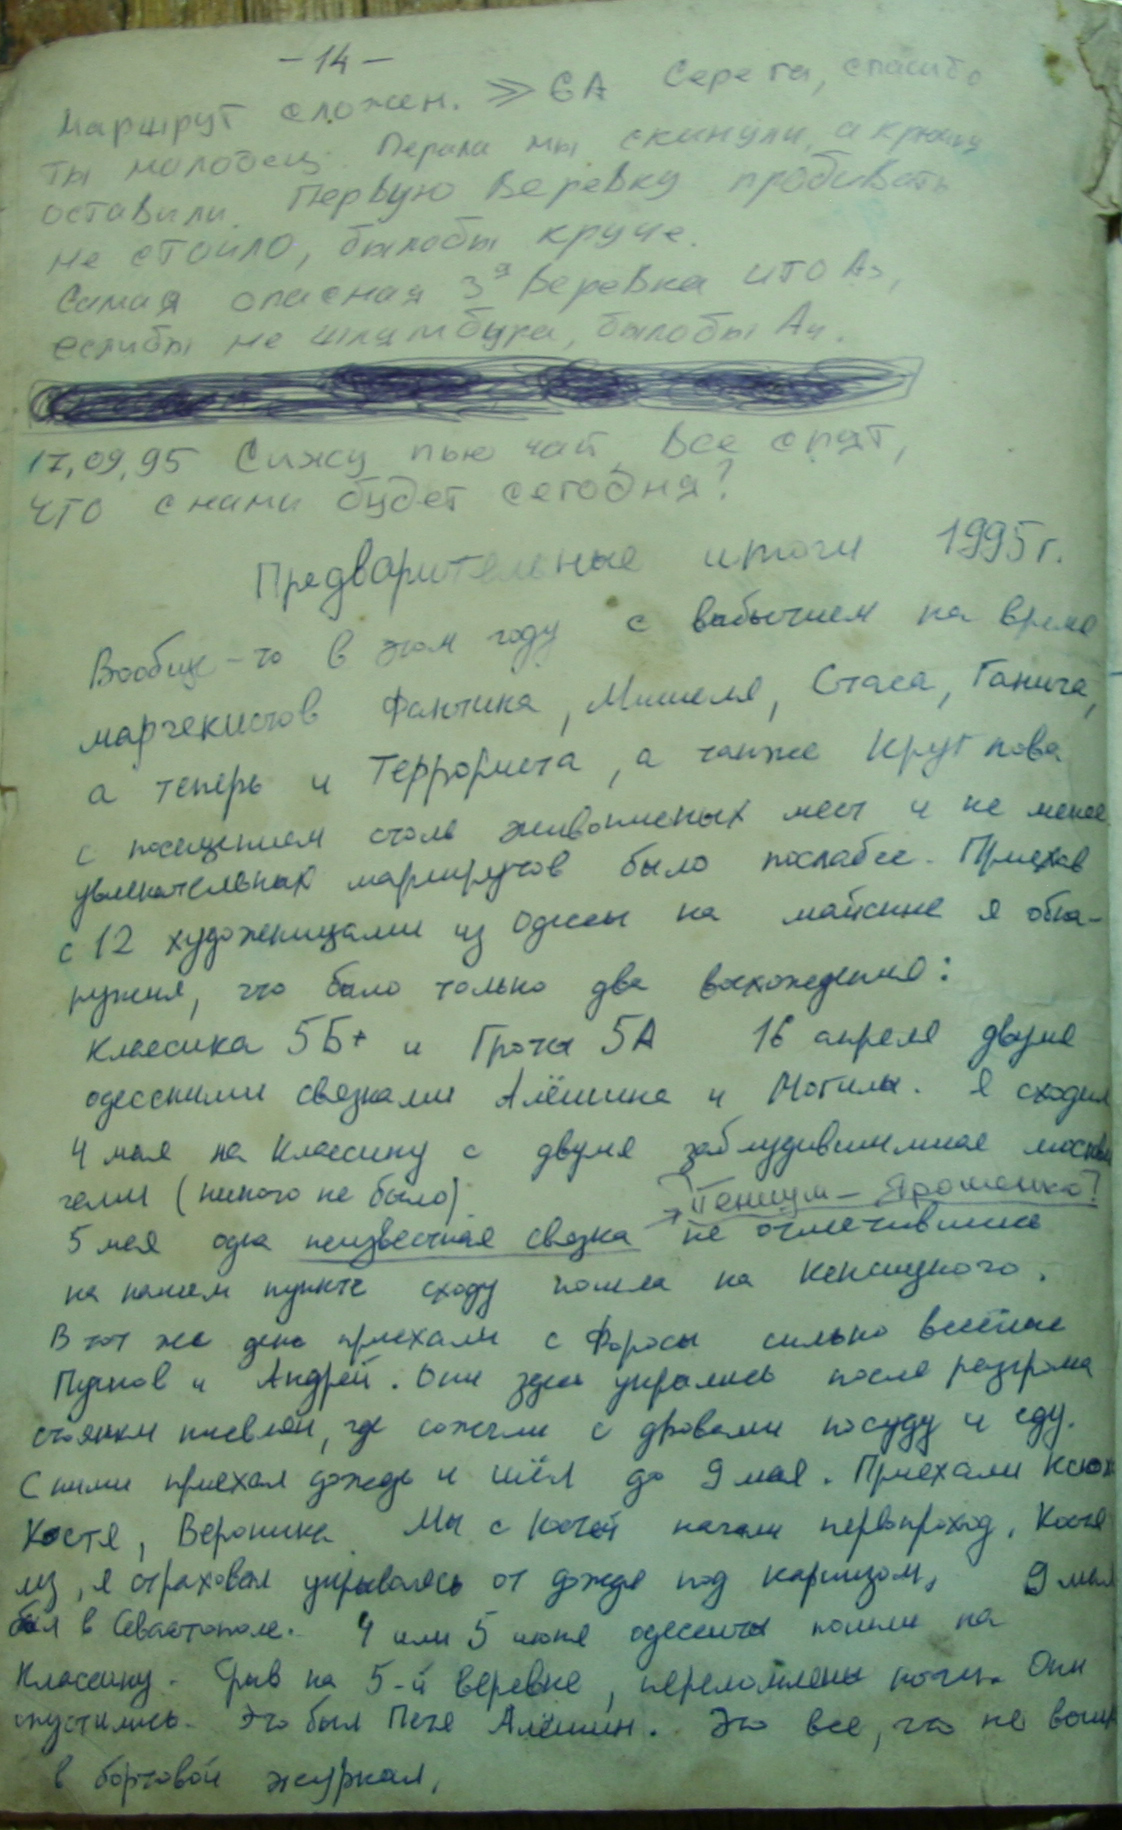 - 14 -
Маршрут сложен. ≫ 6А Серега, спасибо
ты молодец. Перила мы скинули, а крючья
оставили. Первую веревку пробивать
не стоило, былобы круче.
Самая опасная 3я веревка ИТО А3,
еслибы не шлямбура, былобы А4.
17,09,95 Сижу пью чай, все спят,
что с нами будет сегодня?
Предварительные итоги 1995г.
Вообще-то в этом году с выбытием на время
марчекистов Фантика, Мишеля, Стаса, Ганича,
а теперь и Террориста, а также Круглова
с посещением столь живописных мест и не менее
увлекательных маршрутов было послабее. Приехав
с 12 художницами из Одессы на майские я обна-
ружил, что было только два восхождения:
Классика 5Б+ и Гроты 5А 16 апреля двумя
одесскими связками Алёшина и Могилы. Я сходил
4 мая на Классику с двумя заблудившимися москви
чами (никого не было)
→ Геннум - Ярошенко?
5 мая одна неизвестная связка не отметившись
на нашем пункте сходу пошла на Кенсицкого.
В тот же день приехали с Фороса сильно весёлые
Пучков и Андрей. Они здесь укрылись после разгрома
стоянки киевлян, где сожгли с дровами посуду и еду.
С ними приехал дождь и шёл до 9 мая. Приехали
Костя, Вероника. Мы с Костей начали первопроход. Костя
лез, я страховал укрываясь от дождя под карнизом, 9 мая
был в Севастополе. 4 или 5 июня одесситы пошли на
Классику. Срыв на 5-й веревке, переломлены ноги. Они
спустились. Это был Петя Алёшин. Это все, что не вошло
в бортовой журнал.